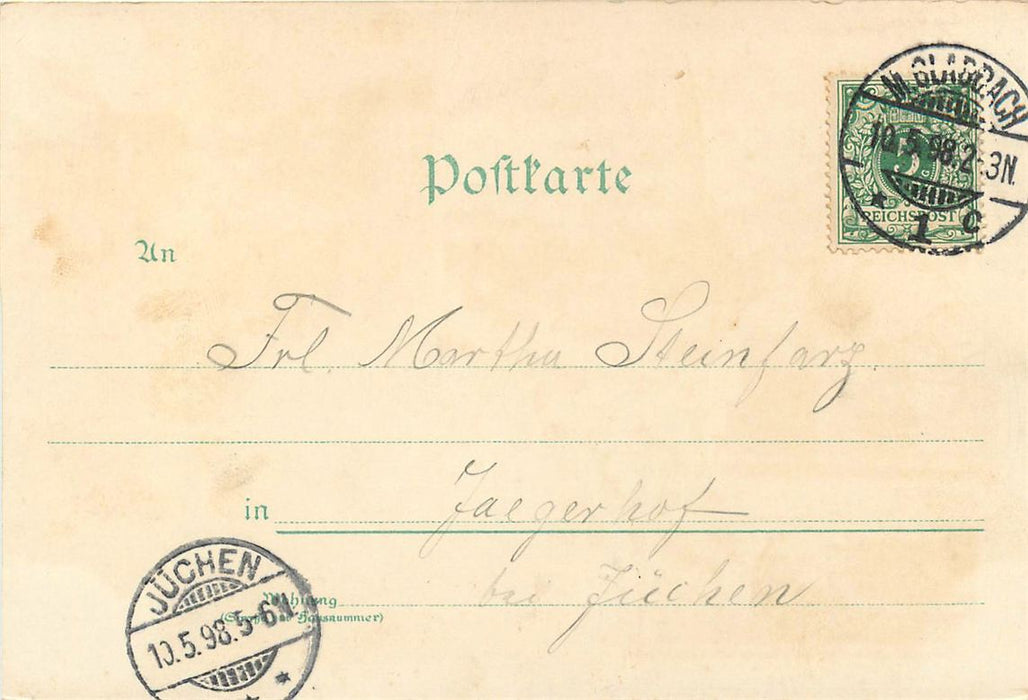 Postkarte
M. GLADBACH
10.5.98.2-3N.
* 1 c
5
REICHSPOST
An
Frl. Martha Steinfarz
in Jaegerhof
bei Jüchen
Wohnung
(Straße und Hausnummer)
JÜCHEN
10.5.98.5-6N.
* *